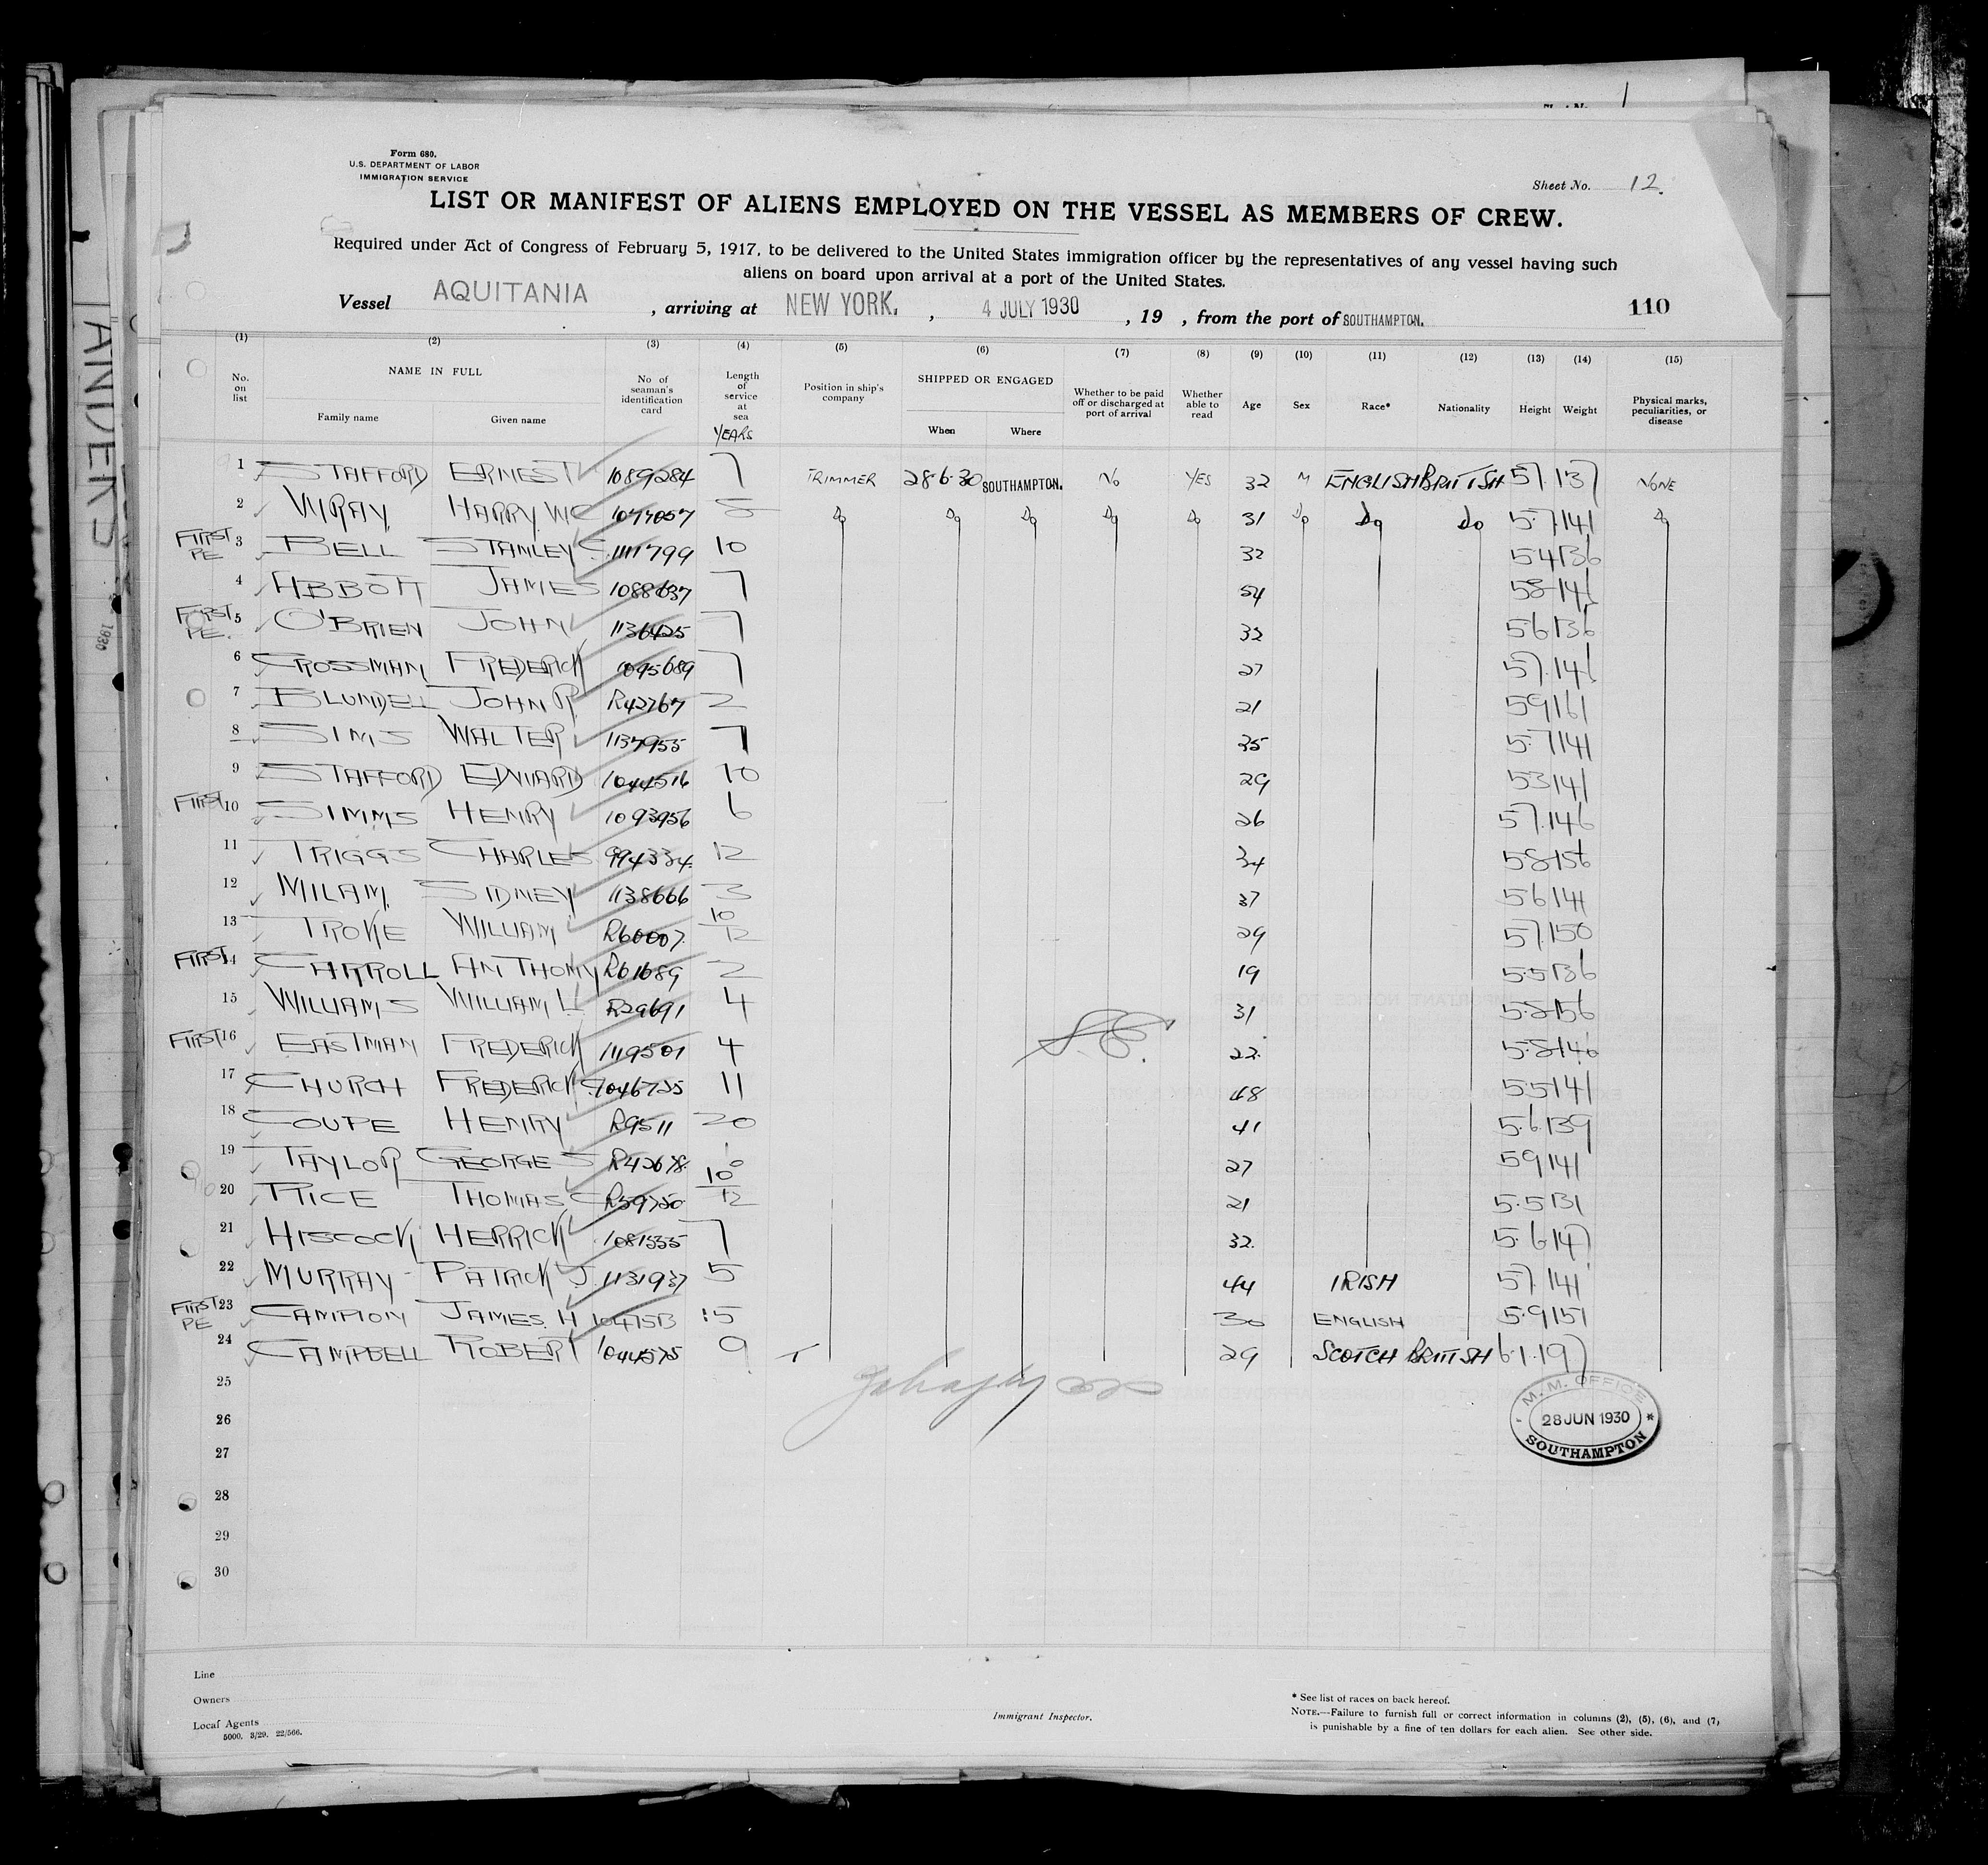 1
Form 680.
U.S. DEPARTMENT OF LABOR
IMMIGRATION SERVICE
Sheet No. 12.
LIST OR MANIFEST OF ALIENS EMPLOYED ON THE VESSEL AS MEMBERS OF CREW.
Required under Act of Congress of February 5, 1917, to be delivered to the United States immigration officer by the representatives of any vessel having such
aliens on board upon arrival at a port of the United States.
Vessel AQUITANIA , arriving at NEW YORK. , 4 JULY 1930 , 19 , from the port of SOUTHAMPTON. 110
(1) (2) (3) (4) (5) (6) (7) (8) (9) (10) (11) (12) (13) (14) (15)
No. on list NAME IN FULL Family name Given name No of seaman's identification card Length of service at sea YEARS Position in ship's company SHIPPED OR ENGAGED When Where Whether to be paid off or discharged at port of arrival Whether able to read Age Sex Race* Nationality Height Weight Physical marks, peculiarities, or disease
1 STAFFORD ERNEST 1089284 7 TRIMMER 28·6·30 SOUTHAMPTON. No YES 32 M ENGLISH BRITISH 5 7. 137 NONE
2 WRAY HARRY. WC 1077057 8 do do do do do 31 do do do 5·7 141 do
FIRST PE 3 BELL STANLEY C. 1111799 10 32 5 4 136
4 ABBOTT JAMES 1088637 7 54 5 8 146
FIRST PE. 5 O'BRIEN JOHN 1136425 7 32 5 6 136
6 CROSSMAN FREDERICK 1095689 7 27 5 7. 146
7 BLUNDELL JOHN R. R42767 2 21 5 9 161
8 SIMS WALTER 1137955 7 35 5·7 141
9 STAFFORD EDWARD 1044516 10 29 5 3 141
FIRST 10 SIMMS HENRY 1093956 6 26 5 7. 146
11 TRIGGS CHARLES 994334. 12 34 5 8 156
12 MILAM. SIDNEY 1138666 3 37 5 6 141
13 TROKE WILLIAM R60007. 10/12 29 5 7. 150
FIRST 14 CARROLL ANTHONY R61689 2 19 5·5 136
15 WILLIAMS WILLIAM H R29691 4 31 5·8 156
FIRST 16 EASTMAN FREDERICK 1119501 4 22. 5·8 146
17 CHURCH FREDERICK C. 1046725 11 48 5·5 141
18 COUPE HENRY R9511 20 41 5·6 139
19 TAYLOR GEORGE S R42678. 27 5 9 141
20 RICE THOMAS C R59750. 10/12 21 5·5 131
21 HISCOCK HERRICK 1081535 7 32. 5·6 147
22 MURRAY PATRICK J. 1131937 5 44 IRISH 5 7. 141
FIRST PE 23 CAMPION JAMES. H 1047513 15 30 ENGLISH 5·9 151
24 CAMPBELL ROBERT 1044575 9 29 SCOTCH BRITISH 6·1·197
25
26
27
28
29
30
M. M. OFFICE
28 JUN 1930
SOUTHAMPTON
Line
Owners
Local Agents
5000. 3/29. 22/566.
Immigrant Inspector.
* See list of races on back hereof.
NOTE.—Failure to furnish full or correct information in columns (2), (5), (6), and (7)
is punishable by a fine of ten dollars for each alien. See other side.
ANDERS
1930